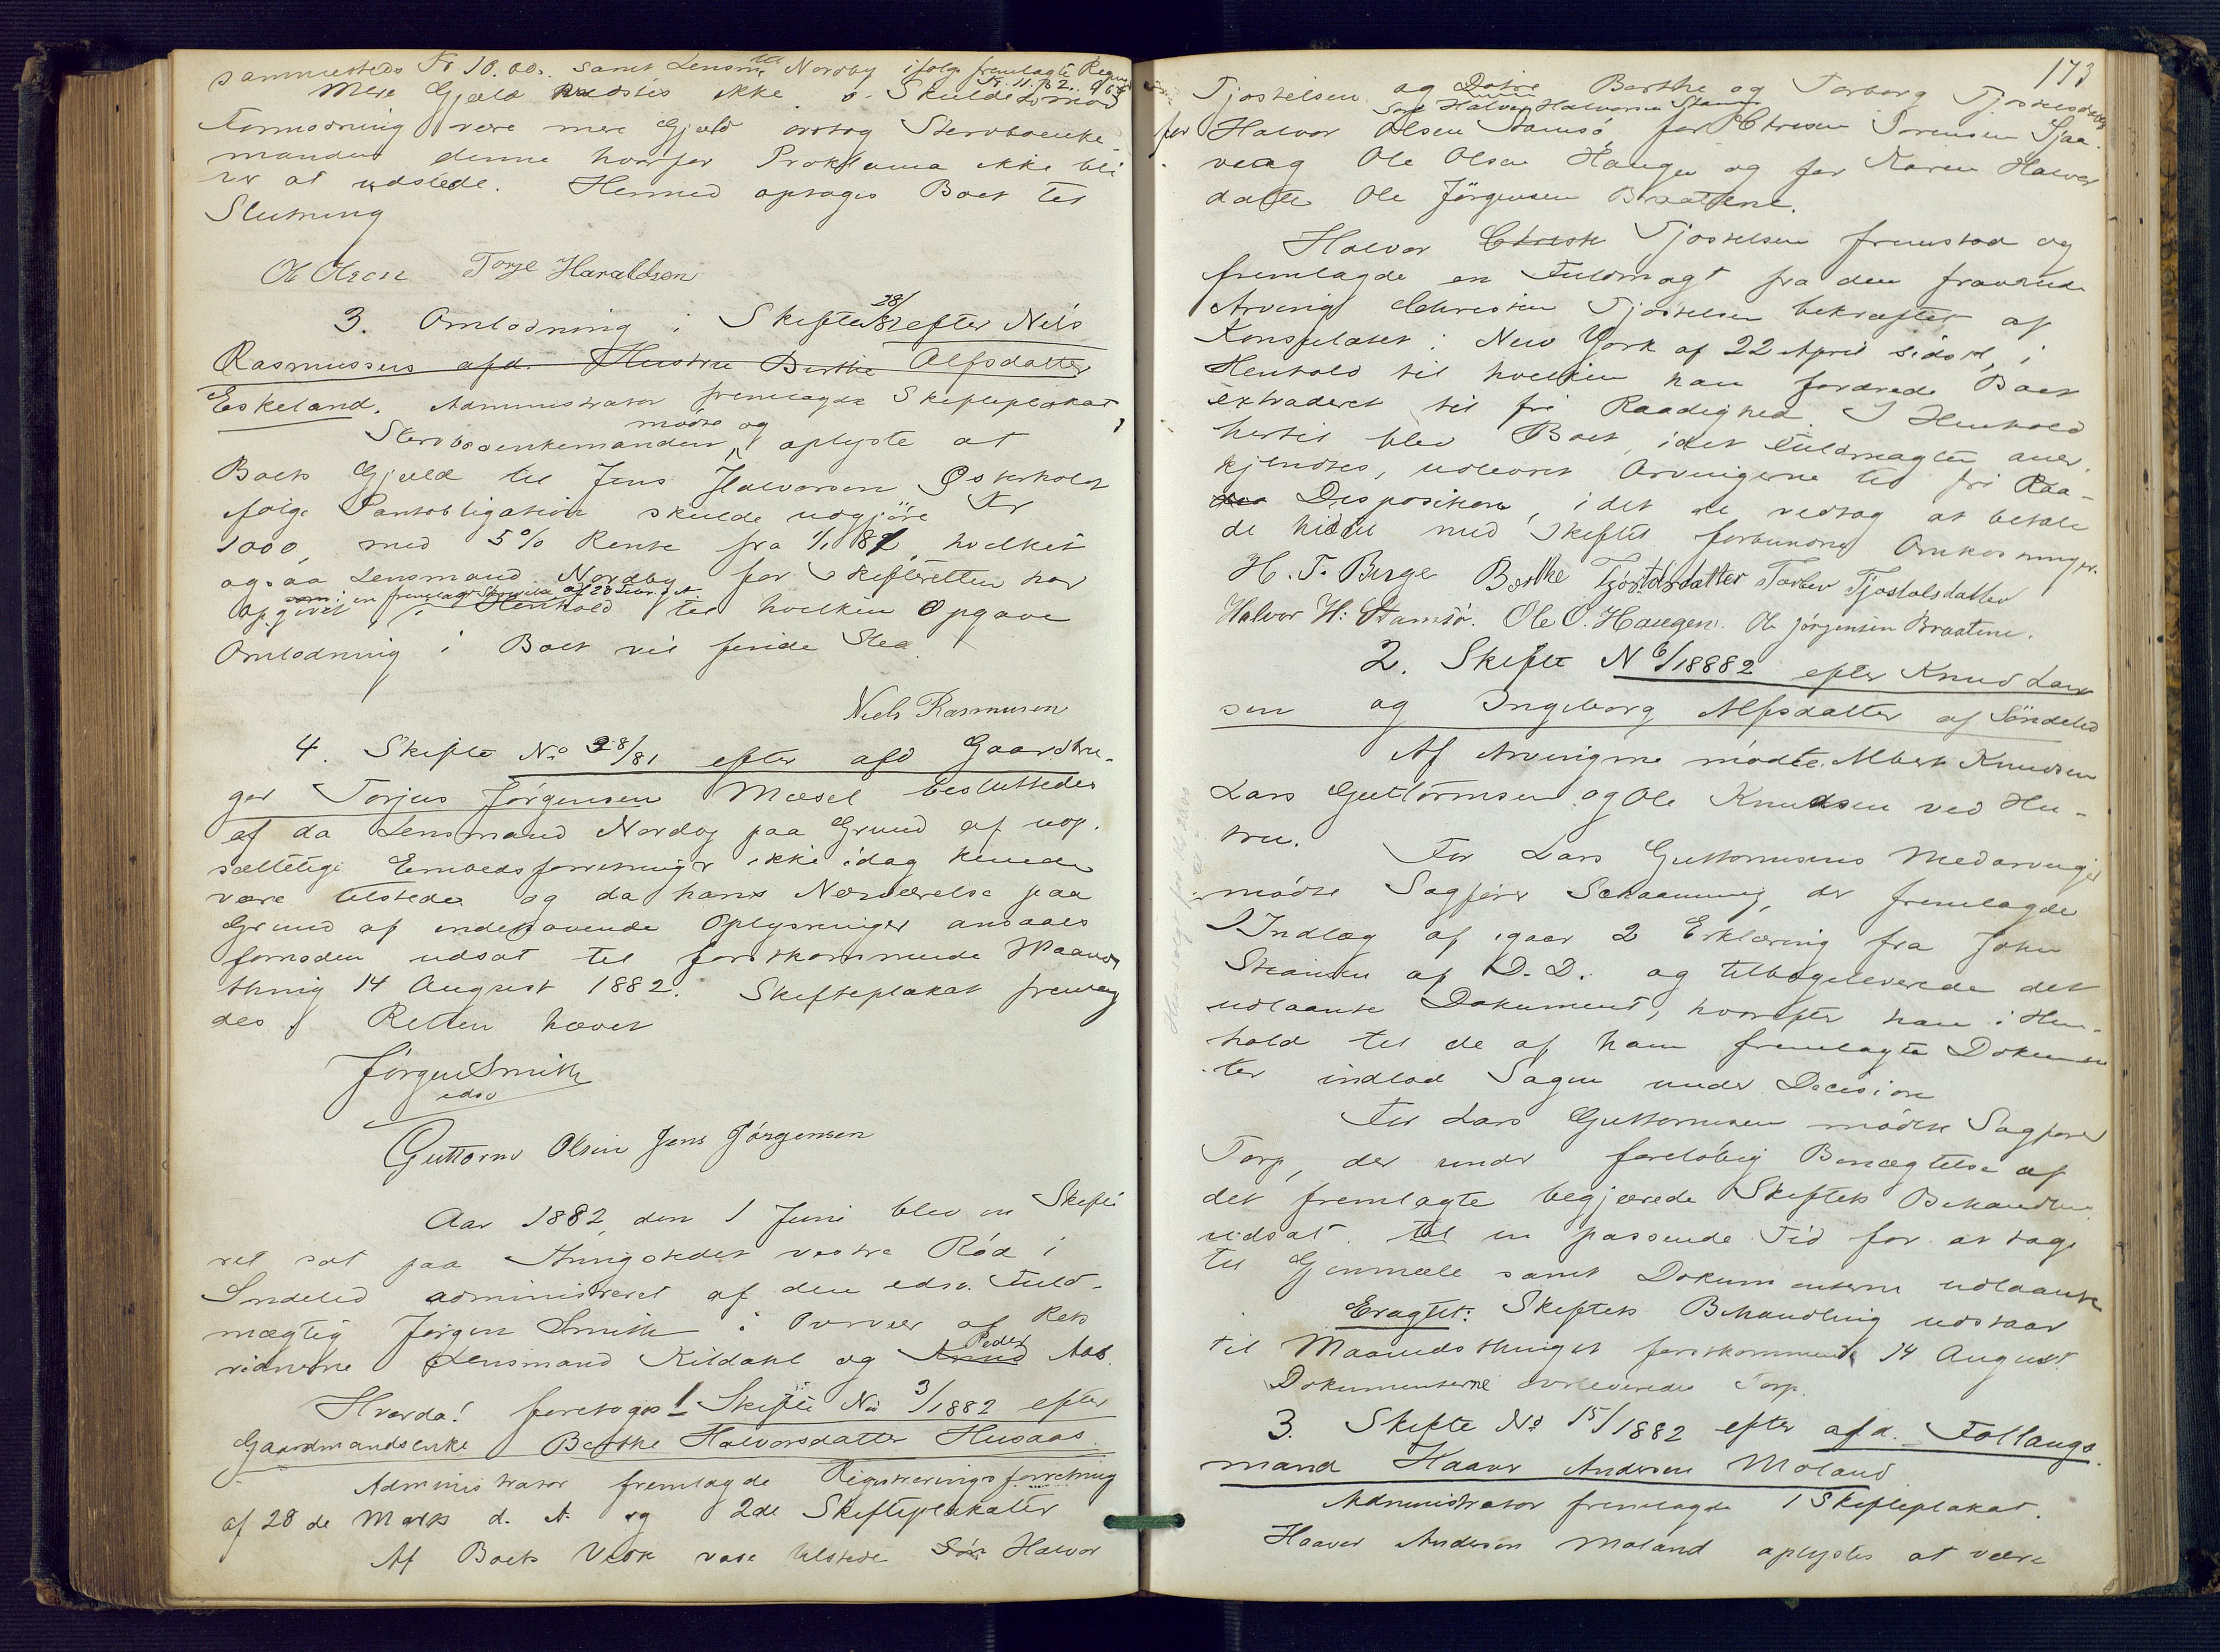 sammesteds Kr 10.00. samt Lensm. til Nordby ifølge fremlagte Regn
Mere Gjæld vidstes ikke o. Skulde imod
Formodning være mere Gjæld overtog Stervboenke
manden denne hvorfor Proklama ikke bli
ver at udstede. Hermed optoges Boet til
Slutning
Ole Olsen Torje Haraldsen
3. Omlodning i Skifte 28/82 efter Nils
Rasmussens afd. Hustru Berthe Alfsdatter
Eskeland. Administrator fremlagde Skifteplakat
mødte og
Stervboenkemanden, oplyste at
Boets Gjæld til Jens Halvorsen Østerholt
følge Pantobligation skulde udgjöre Kr
1000, med 5% Rente fra 1/1 82, hvilket
ogsaa Lensmand Nordby for Skifteretten har
opgivet i Henhold til hvilken Opgave
Omlodning i Boet vil finde Sted
Niels Rasmusen
4. Skifte No 38/81 efter afd Gaardbru-
ger Torjus Jörgensen Mæsel besluttedes
af da Lensmand Nordby paa Grund af uop-
sættelige Embedsforretninger ikke idag kunde
være tilstede og da hans Nærværelse paa
Grund af indehavende Oplysninger ansaaes
fornøden udsat til førstkommende Maaneds
thing 14 August 1882. Skifteplakat fremlag
des. Retten hævet
Jörgen Smith
edsv
Guttorm Olsen Jens Jörgensen
Aar 1882, den 1 Juni blev en Skifte
ret sat paa Thingstedet vestre Röd i
Søndeled administreret af den edsv. Fuld-
mægtig Jørgen Smith i Overvær af Rets
vidnerne Lensmand Kildahl og Arnud Peder Aas.
Hvorda! foretoges 1 Skifte No 3/1882 efter
Gaardmandsenke Berthe Halvorsdatter Husaas
Administrator fremlagde Registreringsforretning
af 28 de Marts d. A. og 2de Skifteplakater
Af Boets Vedk vare tilstede Søn Halvor
173
Tjostelsen og Døtre Berthe og Torborg Tjostelsdøttre
for Halvor Olsen Stamsø Halvor Halvorsen Stamsø for Chresen Sørensen
Ole Olsen Haugen og for Karen Halvor
datter Ole Jörgensen Braatene.
Halvor Chresti Tjostelsen fremstod og
fremlagde en Fuldmagt fra den fraværende
Arving Christen Tjøstelsen bekræftet af
Konsulatet i New York af 22 April sidstl, i
Henhold til hvilken han fordrede Boet
extraderet til fri Raadighed. I Henhold
hertil blev Boet, idet Fuldmagten aner-
kjendtes, udleveret Arvingerne til fri Raa-
Disposition, idet de vedtog at betale
de hidtil med Skiftet forbundne Omkostninger.
H. T. Berge Berthe Tjostolsdatter Torbor Tjostolsdatter
Halvor H: Stamsø. Ole O. Haugen. Ole Jørgensen Braatene.
2. Skifte N 6/18882 efter Knud Lar
sen og Ingeborg Alfsdatter af Söndeled
Af Arvingerne mødte Albert Knudsen
Lars Guttormsen og Ole Knudsen ved Hu-
stru. For Lars Guttormsens Medarvinger
mødte Sagfører Schaanning, der fremlagde
1 Indlæg af igaar 2 Erklæring fra John
Steansen af D. D. og tilbageleverede det
udlaante Dokument, hvorefter han i Hen-
hold til de af ham fremlagte Dokumen
ter indlod Sagen under Decision
For Lars Guttormsen mødte Sagfører
Torp, der under foreløbig Benægtelse af
det fremlagte begjærede Skiftets Behandling
udsat til en passende Tid for at tage
til Gjenmæle samt Dokumenterne udlaante
Eragtet: Skiftets Behandling udstaar
til Maanedsthinget førstkommende 14 August
Dokumenterne overleveredes Torp.
3. Skifte No 15/1882 efter afd. Follaugs
mand Haaver Andersen Moland
Administrator fremlagde 1 Skifteplakat.
Haaver Andersen Moland oplystes at være